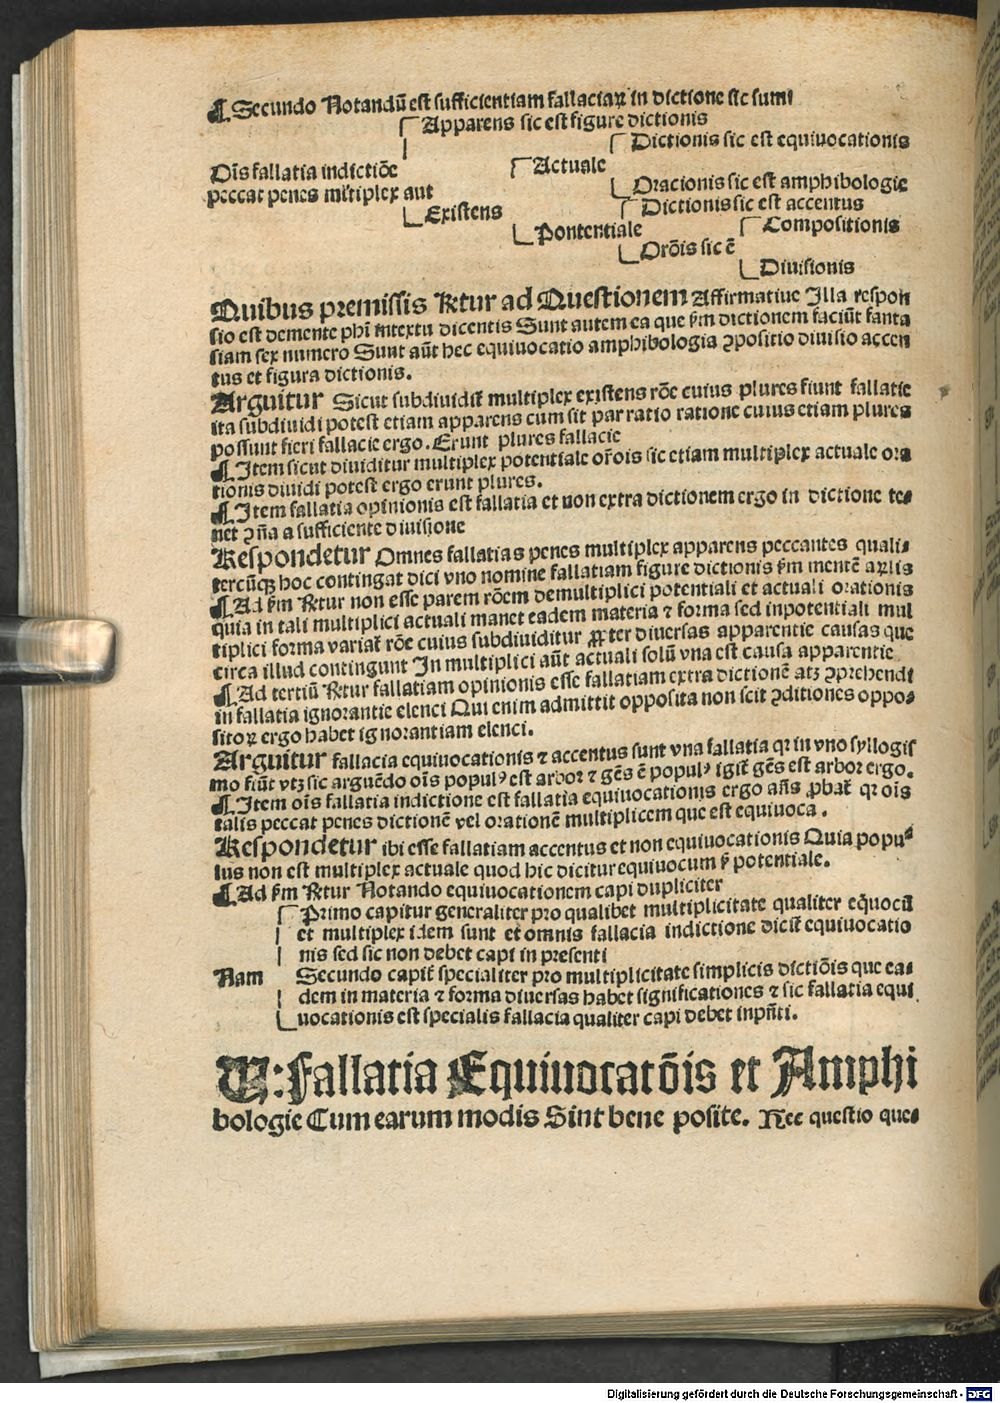 ¶ Secundo Notandū est sufficientiam fallaciaꝝ in dictione sic sumi
Apparens sic est figure dictionis
Dictionis sic est equiuocationis
Oīs fallatia indictiōe
Actuale
peccat penes ml̄tiplex aut
Oracionis sic est amphibologie
Dictionis sic est accentus
Existens
Compositionis
Pontentiale
Orōis sic ē
Diuisionis
Quibus premissis Rr̄tur ad Questionem Affirmatiue Illa respon
sio est demente phī intextu dicentis Sunt autem ea que ẜm dictionem faciūt fanta
siam sex numero Sunt aūt hec equiuocatio amphibologia ꝯpositio diuisio accen
tus et figura dictionis.
Arguitur Sicut subdiuidit̄ multiplex existens rōe cuius plures fiunt fallatie
ita subdiuidi potest etiam apparens cum sit par ratio ratione cuius etiam plures
possunt fieri fallacie ergo. Erunt plures fallacie
¶ Item sicut diuiditur multiplex potentiale or̄ois sic etiam multiplex actuale ora
tionis diuidi potest ergo erunt plures.
¶ Item fallatia opinionis est fallatia et non extra dictionem ergo in dictione te⸗
net ꝯn̄a a sufficiente diuisione
Respondetur Omnes fallatias penes multiplex apparens peccantes quali⸗
tercūqꝫ hoc contingat dici vno nomine fallatiam figure dictionis ẜm mentē aꝝlis
¶ Ad ẜm Rr̄tur non esse parem rōem demultiplici potentiali et actuali orationis
quia in tali multiplici actuali manet eadem materia ⁊ forma sed inpotentiali mul
tiplici forma variat̄ rōe cuius subdiuiditur ꝓpter diuersas apparentie causas que
circa illud contingunt In multiplici aūt actuali solū vna est causa apparentie
¶ Ad tertiū Rr̄tur fallatiam opinionis esse fallatiam extra dictionē atqꝫ ꝯprehendi
in fallatia ignorantie elenci Qui enim admittit opposita non scit ꝯditiones oppo⸗
sitoꝝ ergo habet ignorantiam elenci.
Arguitur fallacia equiuocationis ⁊ accentus sunt vna fallatia qꝛ in vno syllogis
mo fiūt vtꝫ sic arguēdo oīs populꝰ est arbor ⁊ gēs ē populꝰ igit̄ gēs est arbor ergo.
¶ Item oīs fallatia indictione est fallatia equiuocationis ergo an̄s ꝓbat̄ qꝛ oīs
talis peccat penes dictionē vel orationē multiplicem que est equiuoca.
Respondetur ibi esse fallatiam accentus et non equiuocationis Quia popu⸗
lus non est multiplex actuale quod hic dicitur equiuocum ẜꝫ potentiale.
¶ Ad ẜm Rr̄tur Notando equiuocationem capi dupliciter
Primo capitur generaliter pro qualibet multiplicitate qualiter eq̄uocū
et multiplex idem sunt et omnis fallacia indictione dicit̄ equiuocatio
nis sed sic non debet capi in presenti
Nam Secundo capit̄ specialiter pro multiplicitate simplicis dictiōis que ea⸗
dem in materia ⁊ forma diuersas habet significationes ⁊ sic fallatia equi
uocationis est specialis fallacia qualiter capi debet inpn̄ti.
W:fallatia Equiuocatōis et Amphi
bologie Cum earum modis Sint bene posite. Nec questio ques⸗
Digitalisierung gefördert durch die Deutsche Forschungsgemeinschaft - DFG